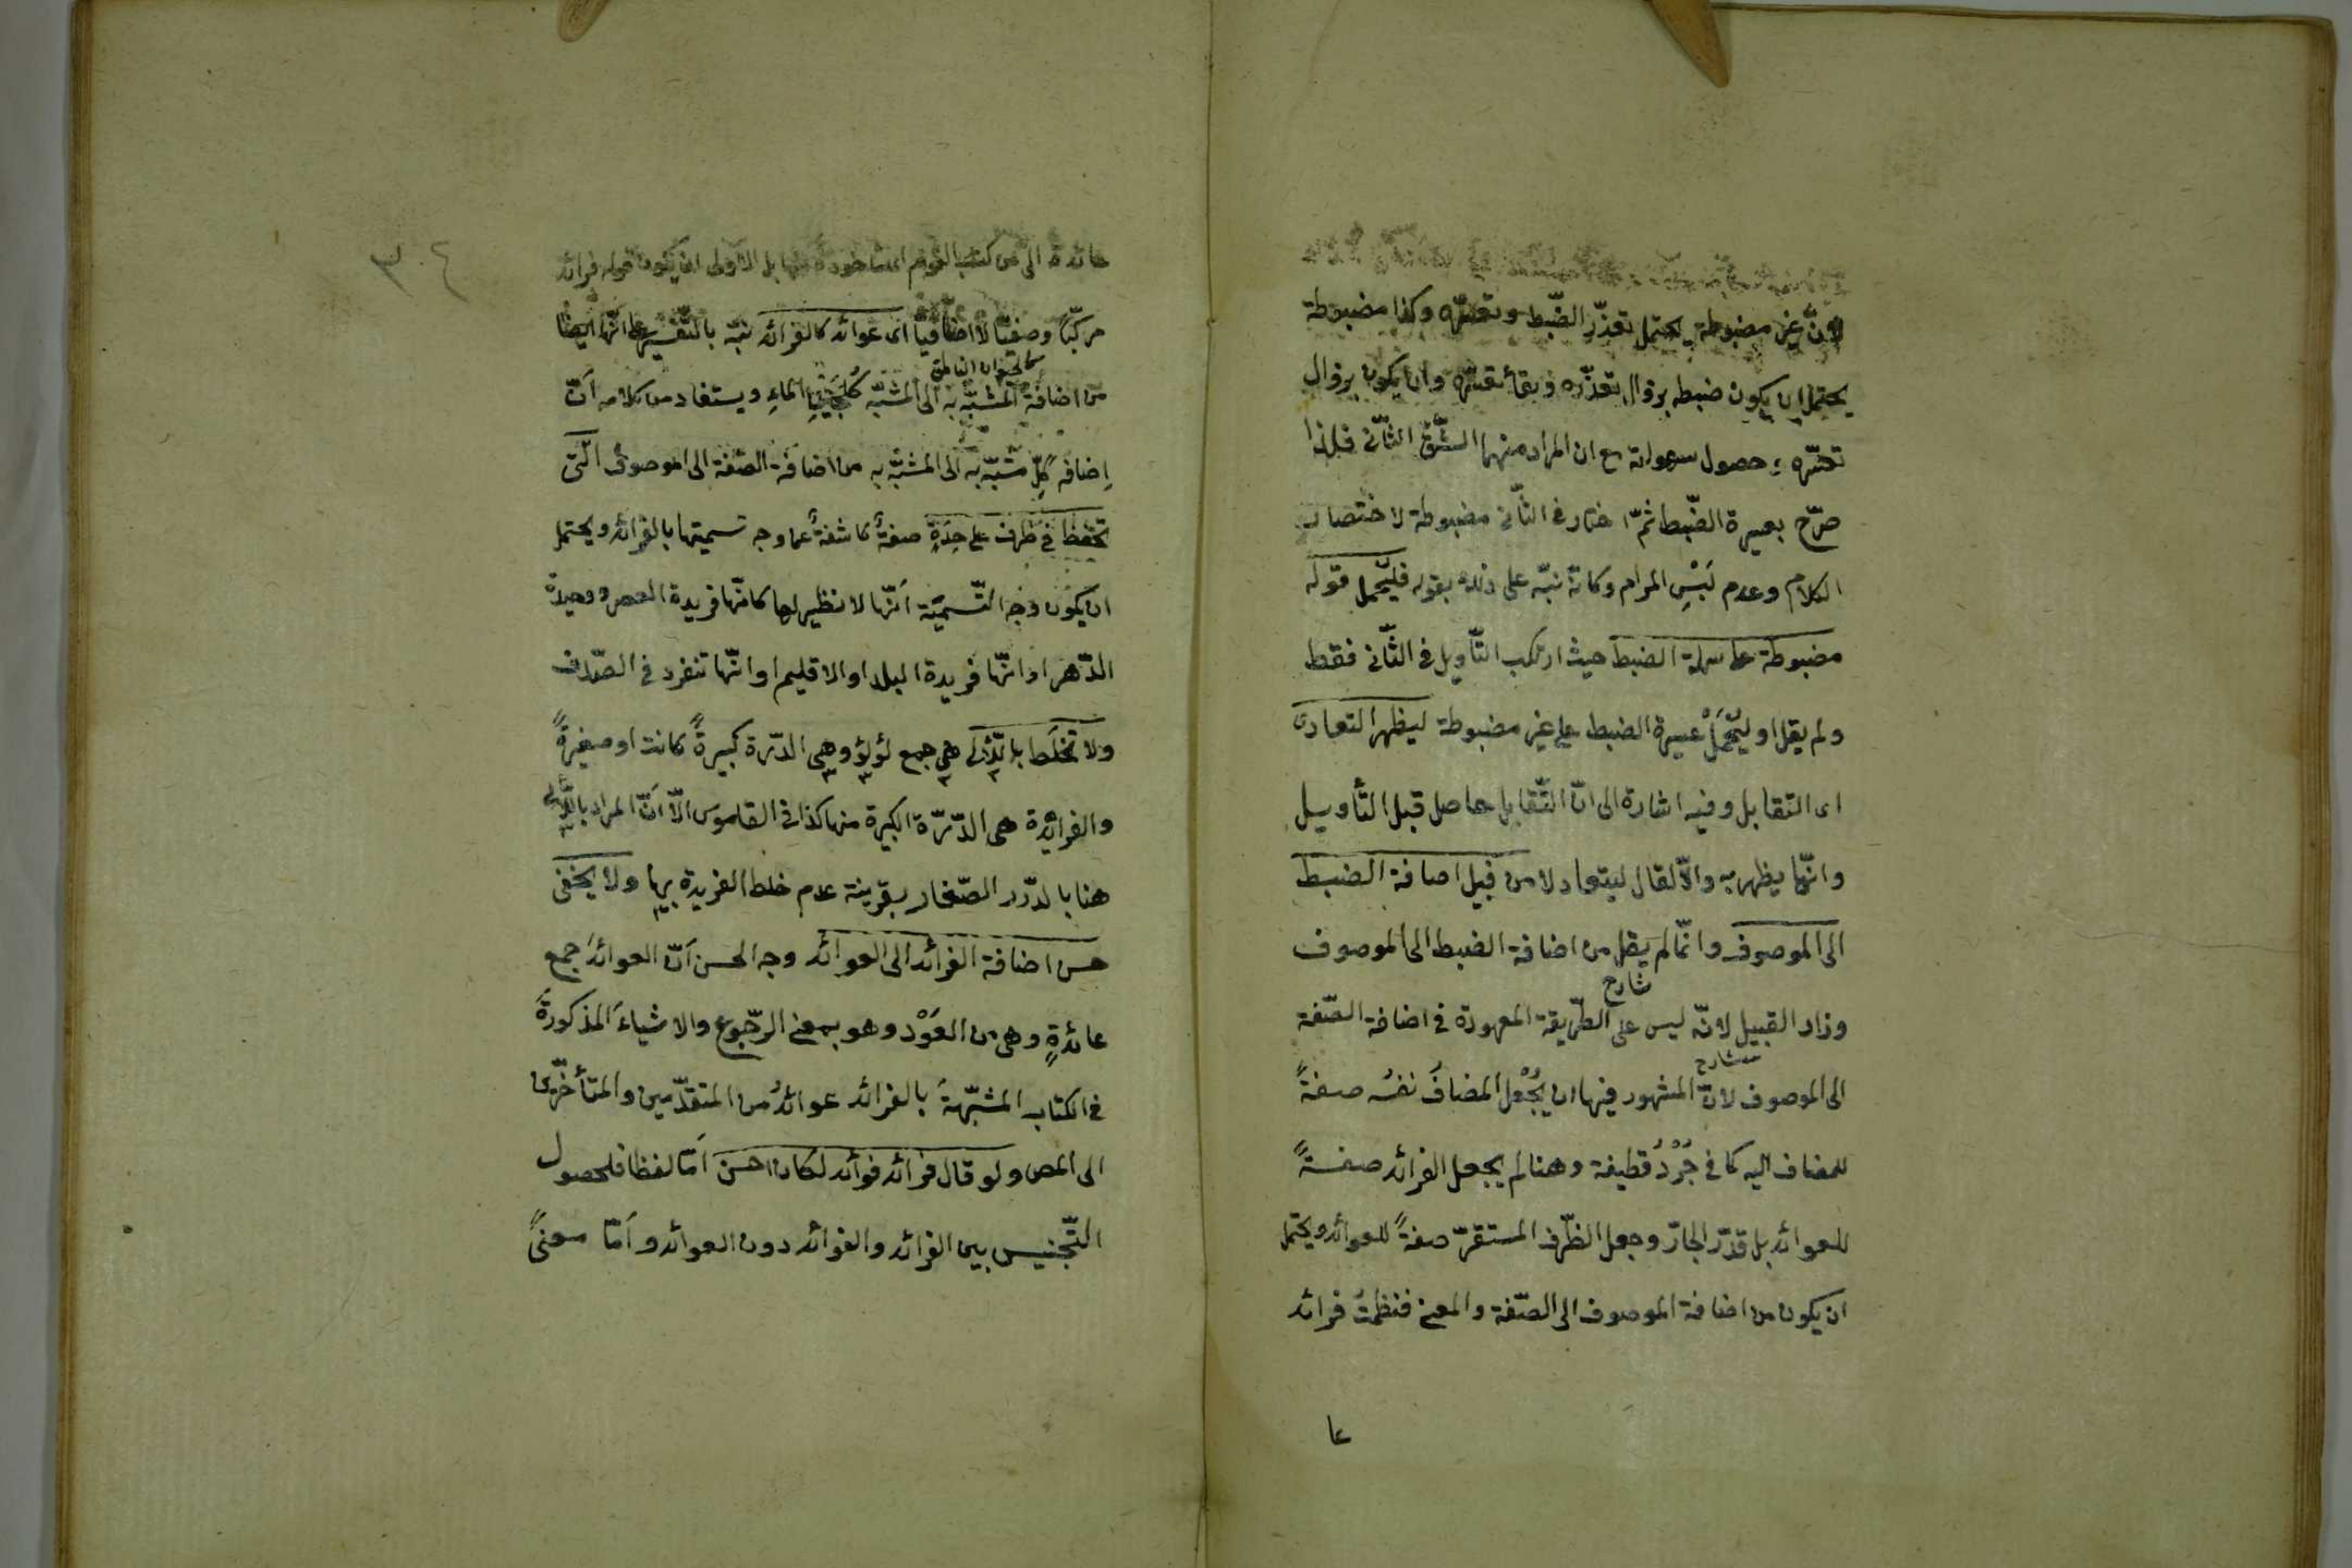 لانّ غير مضبوطة يحتمل تعذّر الضّبط وتعسّره وكذا مضبوطة
يحتمل ان يكون ضبطه بزوال تعذّره وبقاء تعسّره وان يكون بزوال
تعسّره وحصول سهولته مع ان المراد منهما الشّقّ الثّانى فلذا
صرّح بعسيرة الضّبط ثمّ اختار فى الثّانى مضبوطة لاختصار
الكلام وعدم لَبْسِ المرام وكانّه نبّه على ذلك بقوله فليُحمل قوله
مضبوطة على سهلة الضبط حيث ارتكب التّأويل فى الثّانى فقط
ولم يقل او ليُحْمَلْ عسيرة الضبط على غير مضبوطة ليظهر التعادل
اى التقابل وفيه اشارة الى انّ التّقابل حاصل قبل التأويل
وانّما يظهر به والّا لقال ليتعادلا من قبيل اضافة الضبط
الى الموصوف وانّما لم يقل من اضافة الضبط الى الموصوف
شارح
وزاد القبيل لانّه ليس على الطّريقة المعهودة فى اضافة الصّفة
شارح
الى الموصوف لانّ المشهور فيها ان يُجْعل المضافُ نفسُه صفةً
للمضاف اليه كما فى جُرْدُ قطيفة وهنا لم يجعل الفرائد صفةً
للعوائد بل قدّر الجارّ وجعل الظّرف المستقرّ صفةً للعوائد ويحتمل
ان يكون من اضافة الموصوف الى الصّفة والمعنى فنظمتُ فرائد
عا
٣٠٤
عائدة الىّ من كتب القوم اى مأخوذة منها بل الاولى ان يكون قوله فرائد
مركّبًا وصفيّا لا اضافيّا اى عوائد كالفرائد نبّه بالتّفسير على انّها ايضًا
كالحيوان الناطق
من اضافة المشبّه به الى المشبّه كلُجَيْنِ الماءِ ويستفاد من كلامه اَنّ
اِضافة كلِّ مشبّه به الى المشبّه به من اضافة الصّفة الى الموصوف الّتى
تحفظ فى ظرف على حِدَةٍ صفةٌ كاشفةٌ عما وجه تسميتها بالفرائد ويحتمل
ان يكون وجه التّسمية اَنّها لا نظير لها كانّها فريدة العصر ووحيدة
الدّهر او انّها فريدة البلد او الاقليم او انّها تنفرد فى الصّدف
ولا تخلَط باللّآلى هى جمع لؤلؤ وهى الدّرة كبيرةً كانت او صغيرةً
والفرائدة هى الدّرّة الكبيرة منها كذا فى القاموس الّا اَنّ المراد باللّآلى
هنا بالدّرر الصّغار بقرينة عدم خلط الفريدة بها ولا يخفى
حسن اضافة الفرائد الى العوائد وجه الحسن اَنّ العوائدَ جمع
عائدةٍ وهى من العَوْد وهو بمعنى الرّجوع والاشياءَ المذكورةَ
فى الكتاب المشبّهةَ بالفرائد عوائدُ من المتقدّمين والمتأخّرين
الى المص ولو قال فرائد فوائد لكان احسنَ اَمّا لفظا فلحصول
التّجنيس بين الفرائد والفوائد دون العوائد واَمّا معنىً